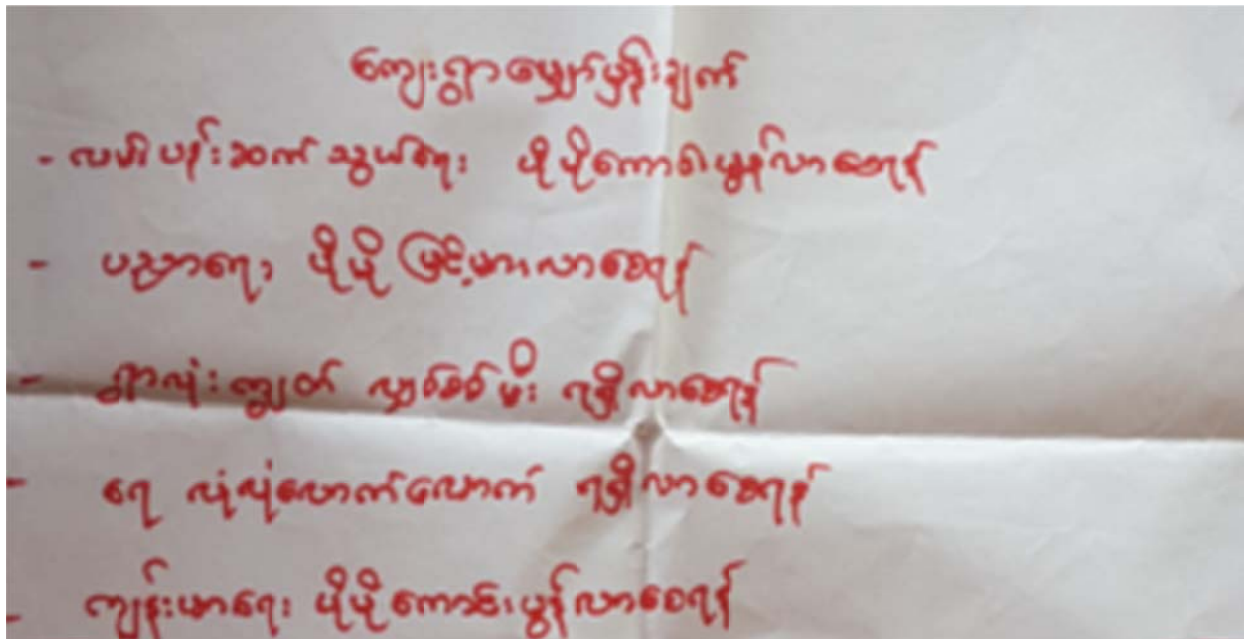 ကျေးရွာမျှော်မှန်းချက်
- လမ်းပန်းဆက်သွယ်ရေး ပိုမိုကောင်းမွန်လာစေရန်
- ပညာရေး ပိုမို မြင့်မားလာစေရန်
- ရွာလုံးကျွတ် လျှပ်စစ်မီး ရရှိလာစေရန်
- ရေ လုံလုံလောက်လောက် ရရှိလာစေရန်
- ကျန်းမာရေး ပိုမိုကောင်းမွန်လာစေရန်